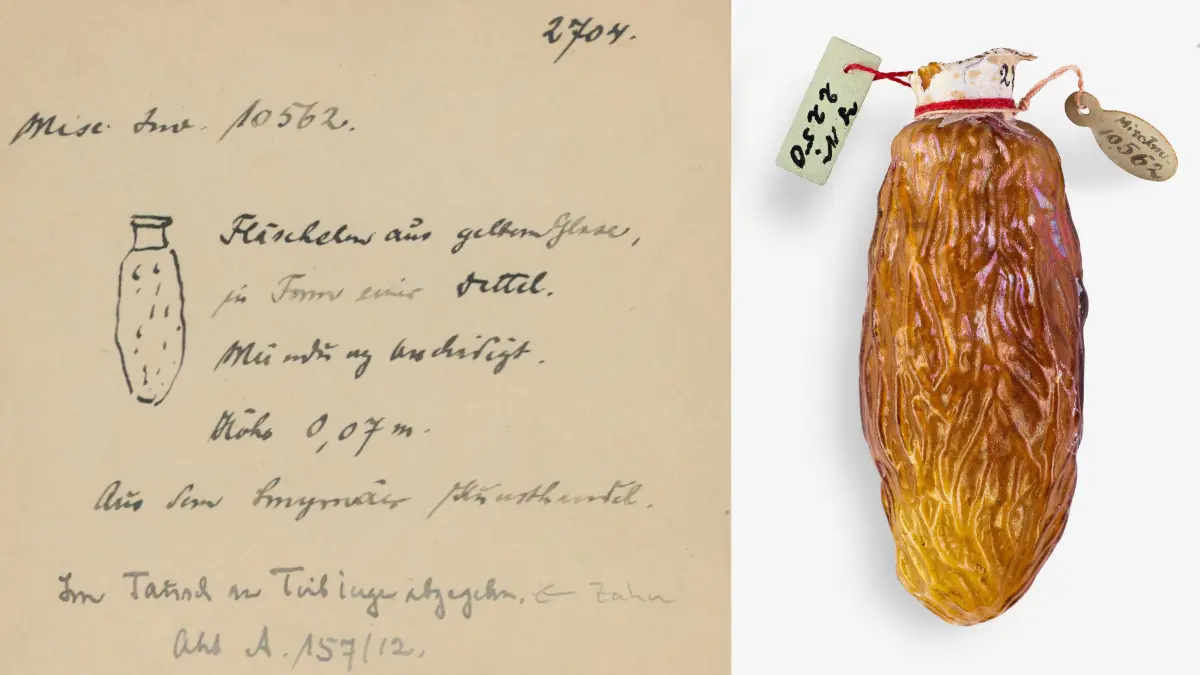 2704.
Misc. Inv. 10562.
Fläschchen aus gelbem Glase,
in Form einer Dattel.
Mündung beschädigt.
Höhe 0,07 m.
Aus dem Smyrnäer Kunsthandel.
Im Tausch an Tübingen abgegeben. ← Zahn
Akt A. 157/12.
2250
Misc Inv.
10562